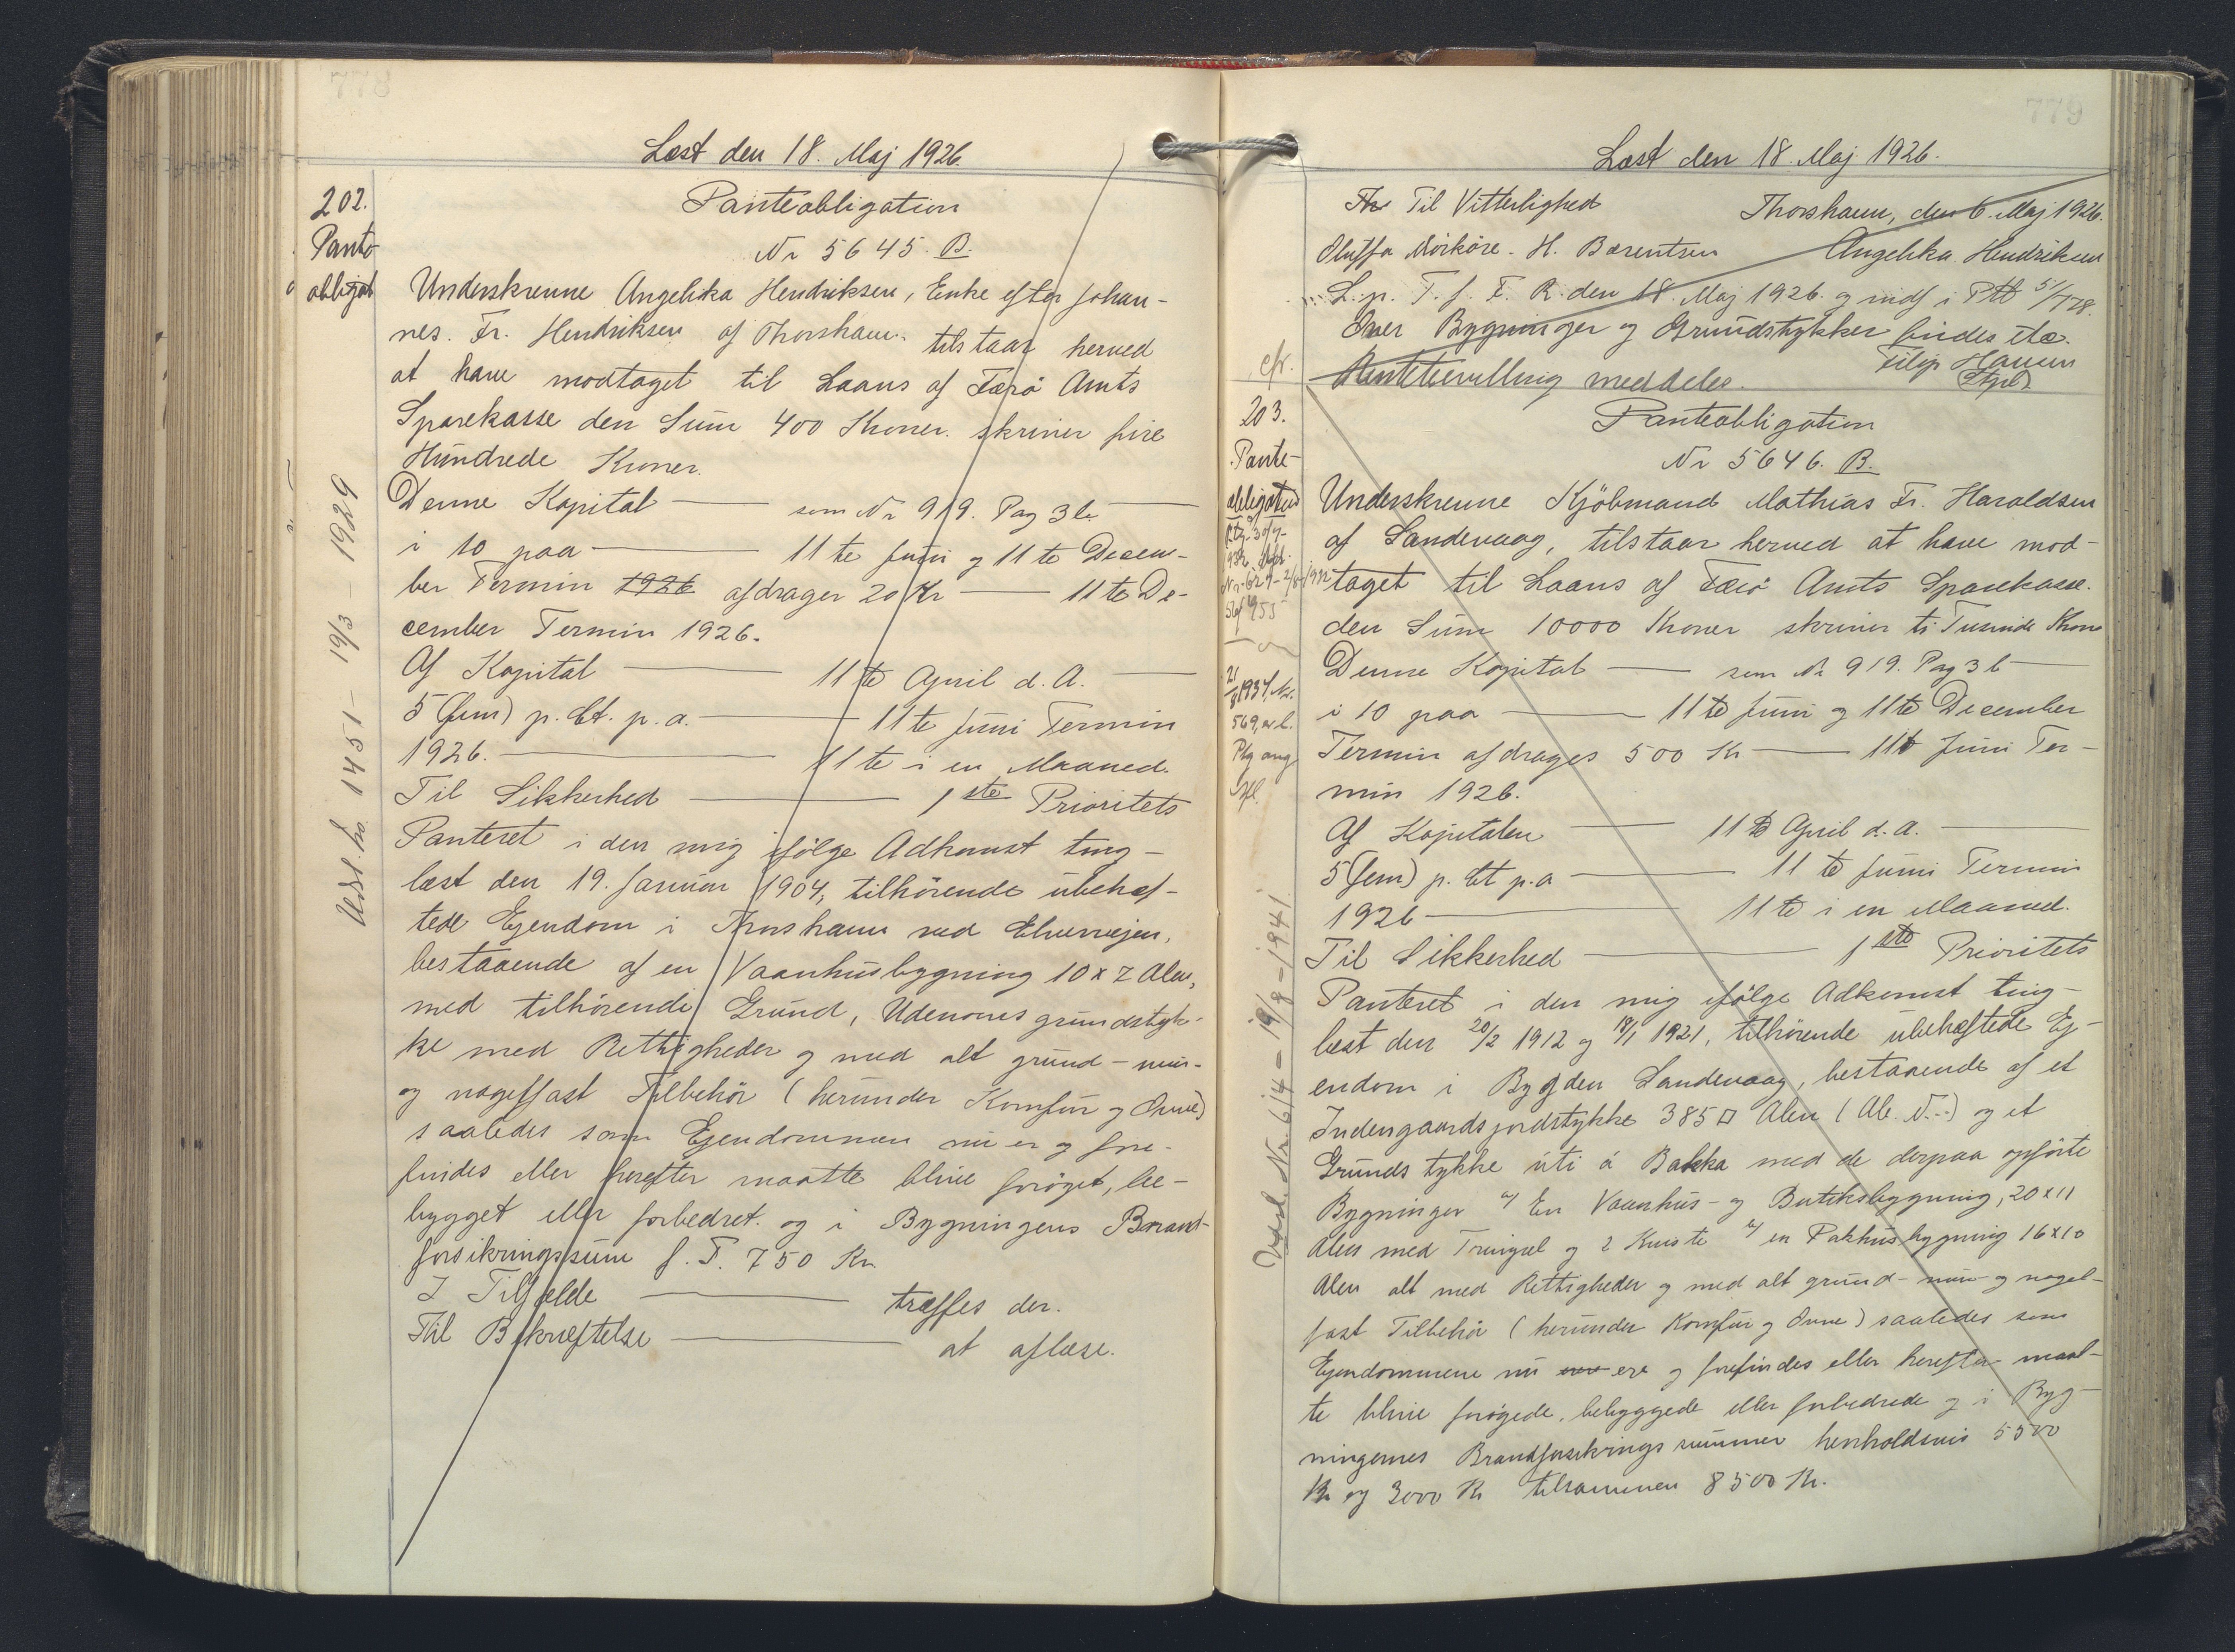 778
Læst den 18. Maj 1926.
202.
Pante
obligat
Udsl. No. 1451 - 19/3 - 1929
Panteobligation
Nr 5645. B.
Underskrevne Angelika Hendriksen, Enke efter Johan-
nes. Fr. Hendriksen af Thorshavn. tilstaar herved
at have modtaget til Laans af Færø Amts
Sparekasse den Sum 400 Kroner. skriver fire
Hundrede Kroner.
Denne Kapital — som Nr 919. Pag 3b. —
i 10 paa — 11te Juni og 11te Decem-
ber Termin 1926 afdrager 20 Kr — 11te De-
cember Termin 1926.
Af Kapital — 11te April d. A. —
5 (fem) p. Ct. p. a. — 11te Juni Termin
1926. — 11te i en Maaned.
Til Sikkerhed — 1ste Prioritets
Panteret i den mig ifølge Adkomst ting-
læst den 19. Januar 1904, tilhørende ubehæf-
tede Ejendom i Thorshavn ved
bestaaende af en Vaanhusbygning 10 x 7 Alen,
med tilhørende Grund, Udenomsgrundstyk-
ke med Rettigheder og med alt grund- mur-
og nagelfast Tilbehør (herunder Komfur og Ovne)
saaledes som Ejendommen nu er og fore-
findes eller herefter maatte blive forøget, be-
bygget eller forbedret. og i Bygningens Brand-
forsikringssum f. T. 750 Kr
I Tilfælde — træffes der.
Til Bekræftelse — at aflæse.
779
Læst den 18. Maj 1926.
Til Vitterlighed Thorshavn, den 6. Maj 1926.
Oluffa Mörköre. H. Barentsen Angelika Hendriksen
L. p. T. f. F. R. den 18. Maj 1926. og indf i 51/778.
Over Bygninger og Grundstykker findes
meddeles. Filip Hansen
cfr.
203.
Pante-
obligation
21/8 1934, Nr.
569,
Udsl. Nr. 614 - 19/8 - 1941
Panteobligation
Nr 5646. B.
Underskrevne Kjöbmand Mathias Fr. Haraldsen
af Sandevaag, tilstaar herved at have mod-
taget til Laans af Færø Amts Sparekasse.
den Sum 10000 Kroner skriver ti Tusinde Krone
Denne Kapital — som Nr 919. Pag 3b —
i 10 paa — 11te Juni og 11te December
Termin afdrages 500 Kr — 11te Juni Ter-
min 1926.
Af Kapitalen — 11te April d. A. —
5 (fem) p. Ct p. a — 11te Juni Termin
1926 — 11te i en Maaned.
Til Sikkerhed — 1ste Prioritets
Panteret i den mig ifølge Adkomst ting-
læst den 20/2 1912 og 18/1 1921, tilhörende ubehæftede Ej-
endom i Bygden Sandevaag, bestaaende af et
Indengaardsjordstykke 385 □ Alen og et
Grundstykke úti á Bakka med de derpaa opførte
Bygninger a/ En Vaanhus- og Butiksbygning, 20 x 11
Alen med og 2 Kviste b/ en Pakhusbygning 16 x 10
Alen alt med Rettigheder og med alt grund- mur- og nagel-
fast Tilbehør (herunder Komfur og Ovne) saaledes som
Ejendommene nu ere og forefindes eller herefter maat-
te blive forøgede, bebyggede eller forbedrede og i Byg-
ningernes Brandforsikringssummer henholdsvis 5500
Kr og 3000 Kr tilsammen 8500 Kr.